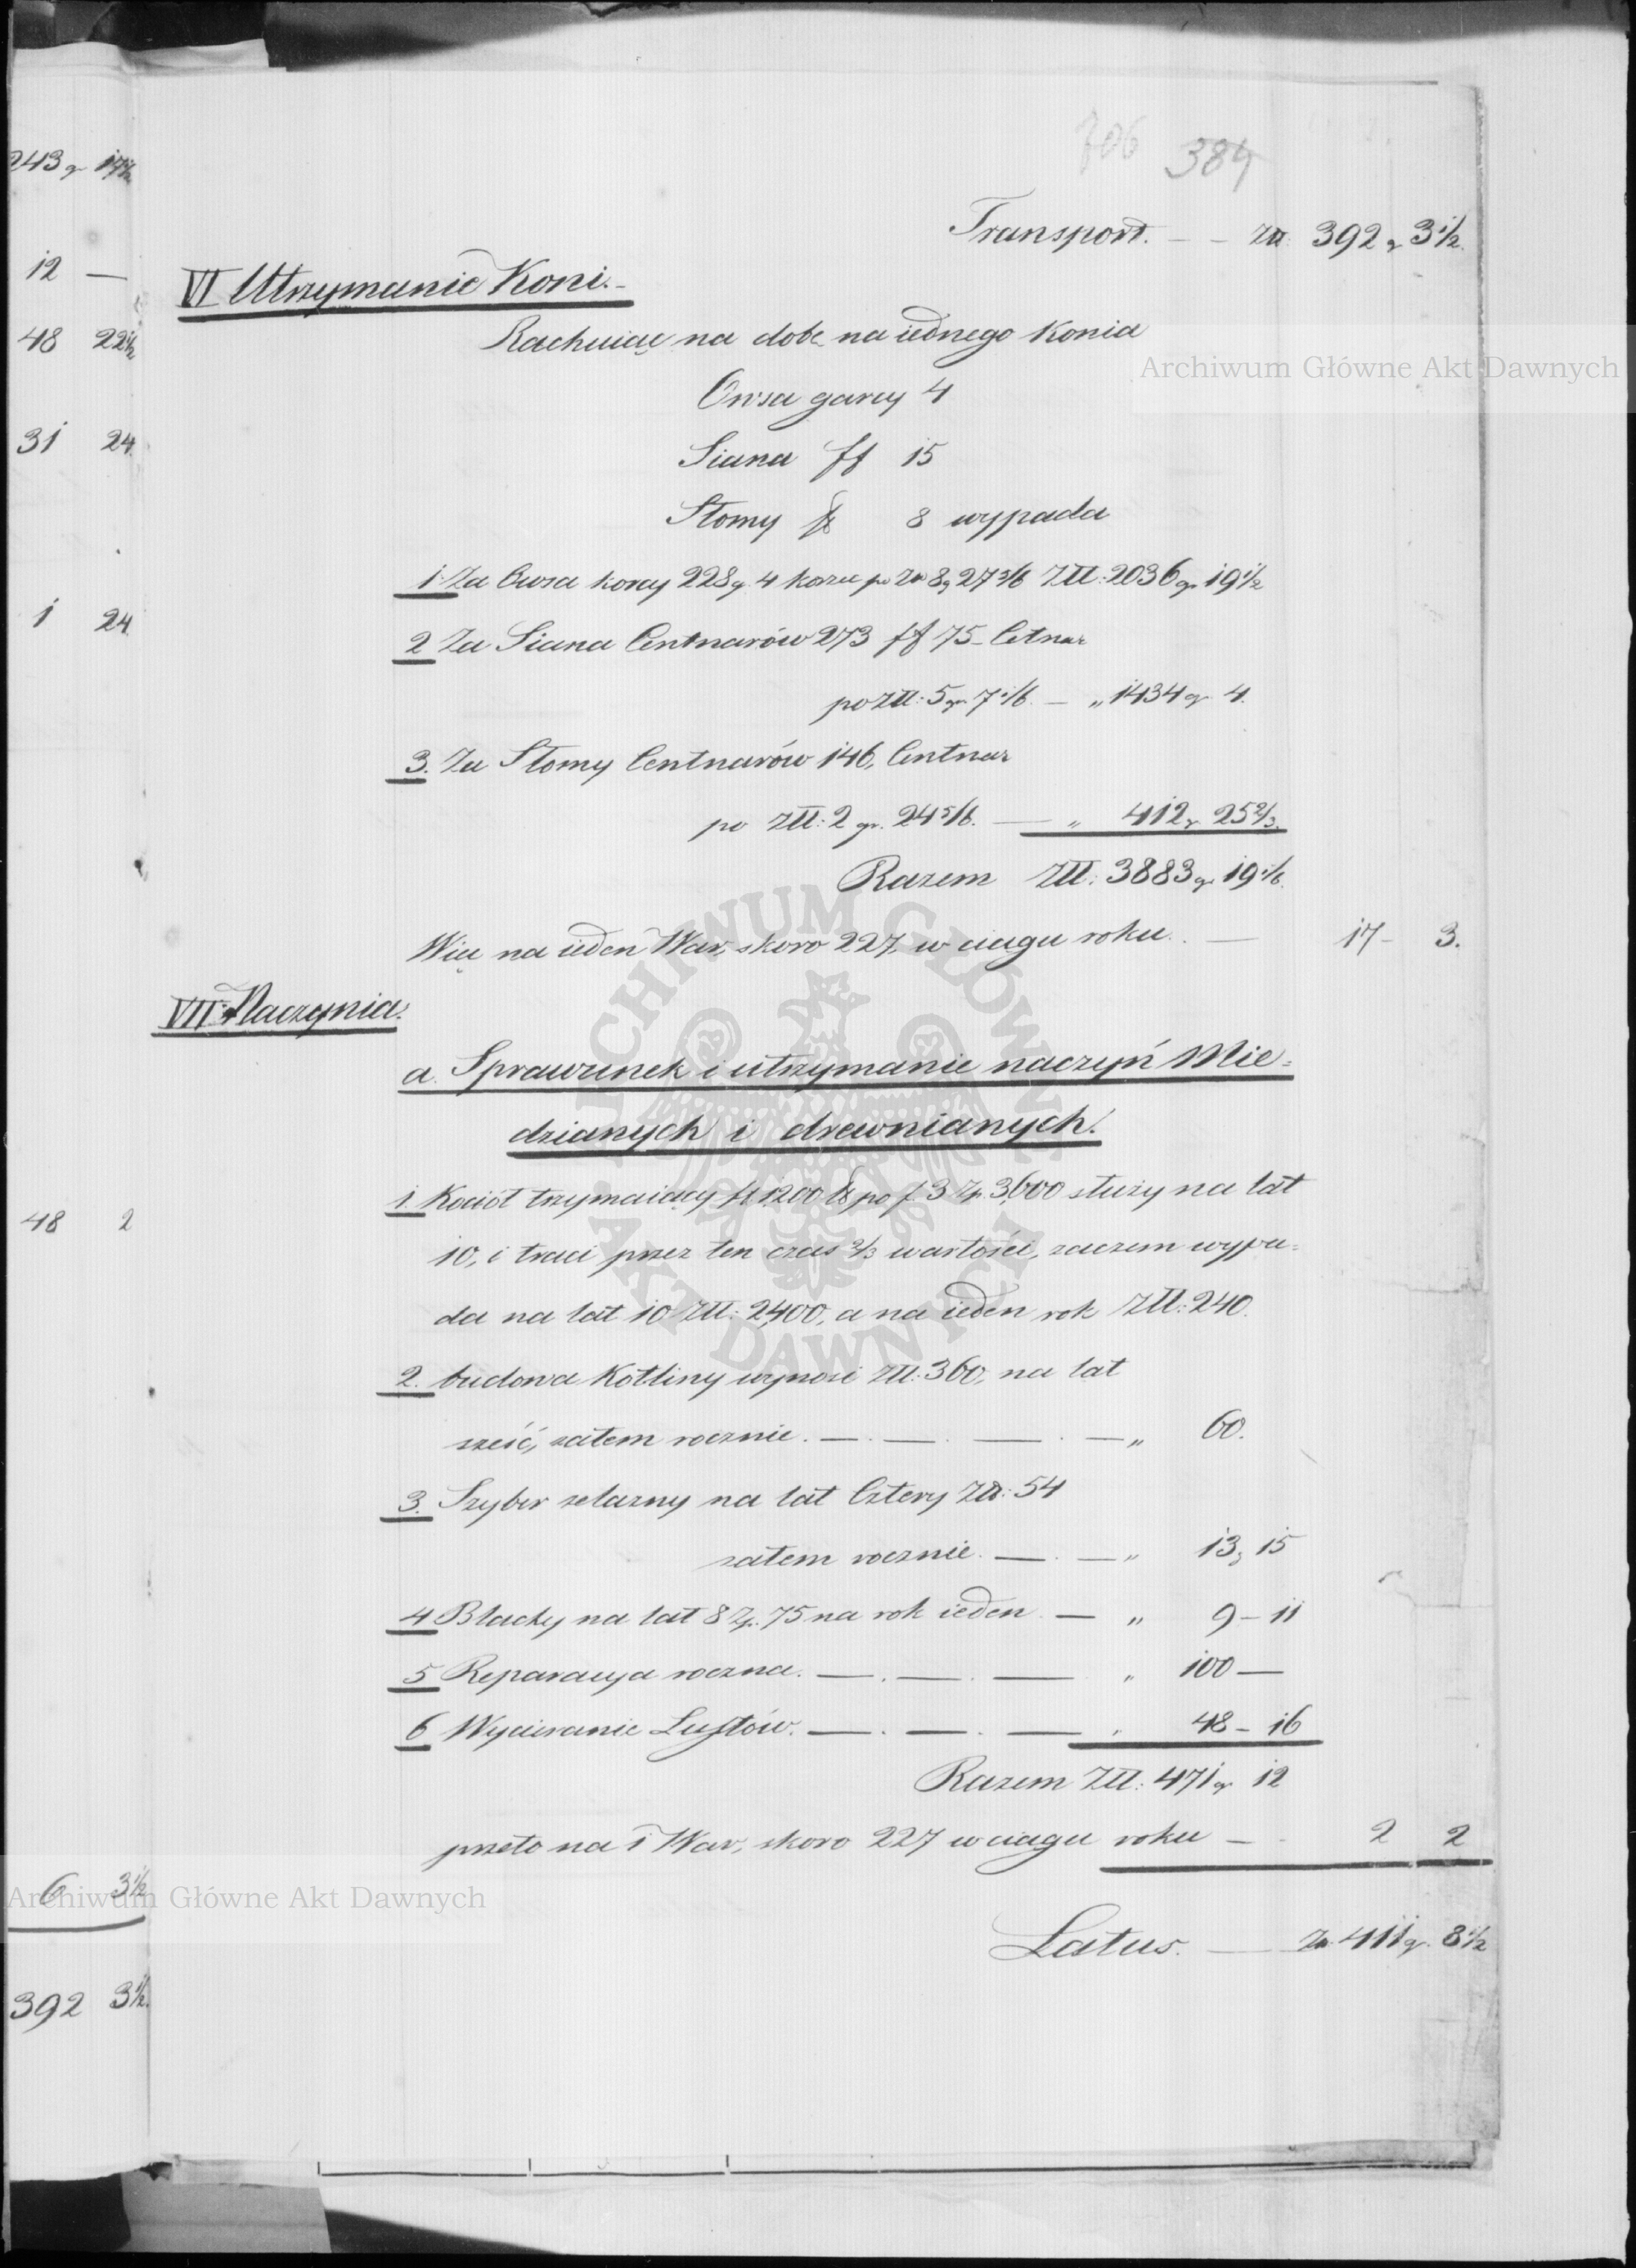 706 384
Transport. — — Złł: 392 gr 3 1/2
VI Utrzymanie Koni. –
Rachuiąc na dobę na iednego Konia
Owsa garcy 4
Siana ff 15
Słomy ff 8 wypada
1. Za Owsa korcy 228 g. 4 korzec po Zł 8 g 27 5/6 Złł: 2036 gr 19 1/2
2 Za Siana Centnarów 273 ff 75 – Cetnar
po Złł: 5 gr. 7 1/6. — „ 1434 gr 4.
3. Za Słomy Centnarów 146, Centnar
po Złł: 2 gr. 24 5/6. — „ 412 gr 25 2/3.
Razem Złł: 3883 gr. 19 1/6.
Więc na ieden War, skoro 227, w ciągu roku. — 17 – 3.
VII. Naczynia.
a. Sprawunek i utrzymanie naczyń Mie=
dzianych i drewnianych.
1. Kocioł trzymaiący ff 1200 po f 3 Zp. 3,600 służy na lat
10, i traci przez ten czas 2/3 wartości, zaczem wypa=
da na lat 10 Złł: 2400, a na ieden rok Złł: 240.
2. budowa Kotliny wynosi Złł: 360, na lat
sześć, zatem rocznie. — . — . — . — „ 60.
3. Szyber żelazny na lat Cztery Złł: 54
zatem rocznie. — . — „ 13, 15
4 Blachy na lat 8 Zp. 75 na rok ieden. — „ 9 – 11
5 Reparacya roczna. — . — . — „ 100 —
6 Wycieranie Lustów. — . — . — „ 48 – 16
Razem Złł: 471 gr 12
przeto na 1 War, skoro 227 w ciągu roku — 2 2
Latus. — Zł. 411 gr. 8 1/2
243 gr 17 1/2
12 —
48 22 1/2
31 24
1 24
48 2
6 3 1/2
392 3 1/2.
Archiwum Główne Akt Dawnych
ARCHIWUM GŁÓWNE AKT DAWNYCH
Archiwum Główne Akt Dawnych